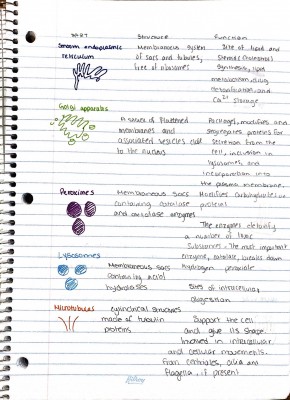 PART Structure Function
Smooth endoplasmic Membraneous system Site of lipid and
reticulum of sacs and tubules, steroid (cholesterol)
free of ribosomes synthesis, lipid
metabolism, drug
detoxification, and
Ca²⁺ storage
Golgi apparatus
A series of flattened Packages, modifies and
membranes and segregates proteins for
associated vesicles close secretion from the
to the nucleus cell, inclusion in
lysosomes, and
incorporation into
the plasma membrane.
Peroxisomes Membraneous sacs Modifies carbohydrates
containing catalase proteins
and oxidase enzymes
The enzymes detoxify
a number of toxic
substances. The most important
Lysosomes enzyme, catalase, breaks down
Membraneous sacs hydrogen peroxide
containing acid
hydrolases Sites of intracellular
digestion
Microtubules cylindrical structures
made of tubulin Support the cell
proteins and give its shape.
Involved in intracellular
and cellular movements.
Form centrioles, cilia and
flagella, if present
Hilroy